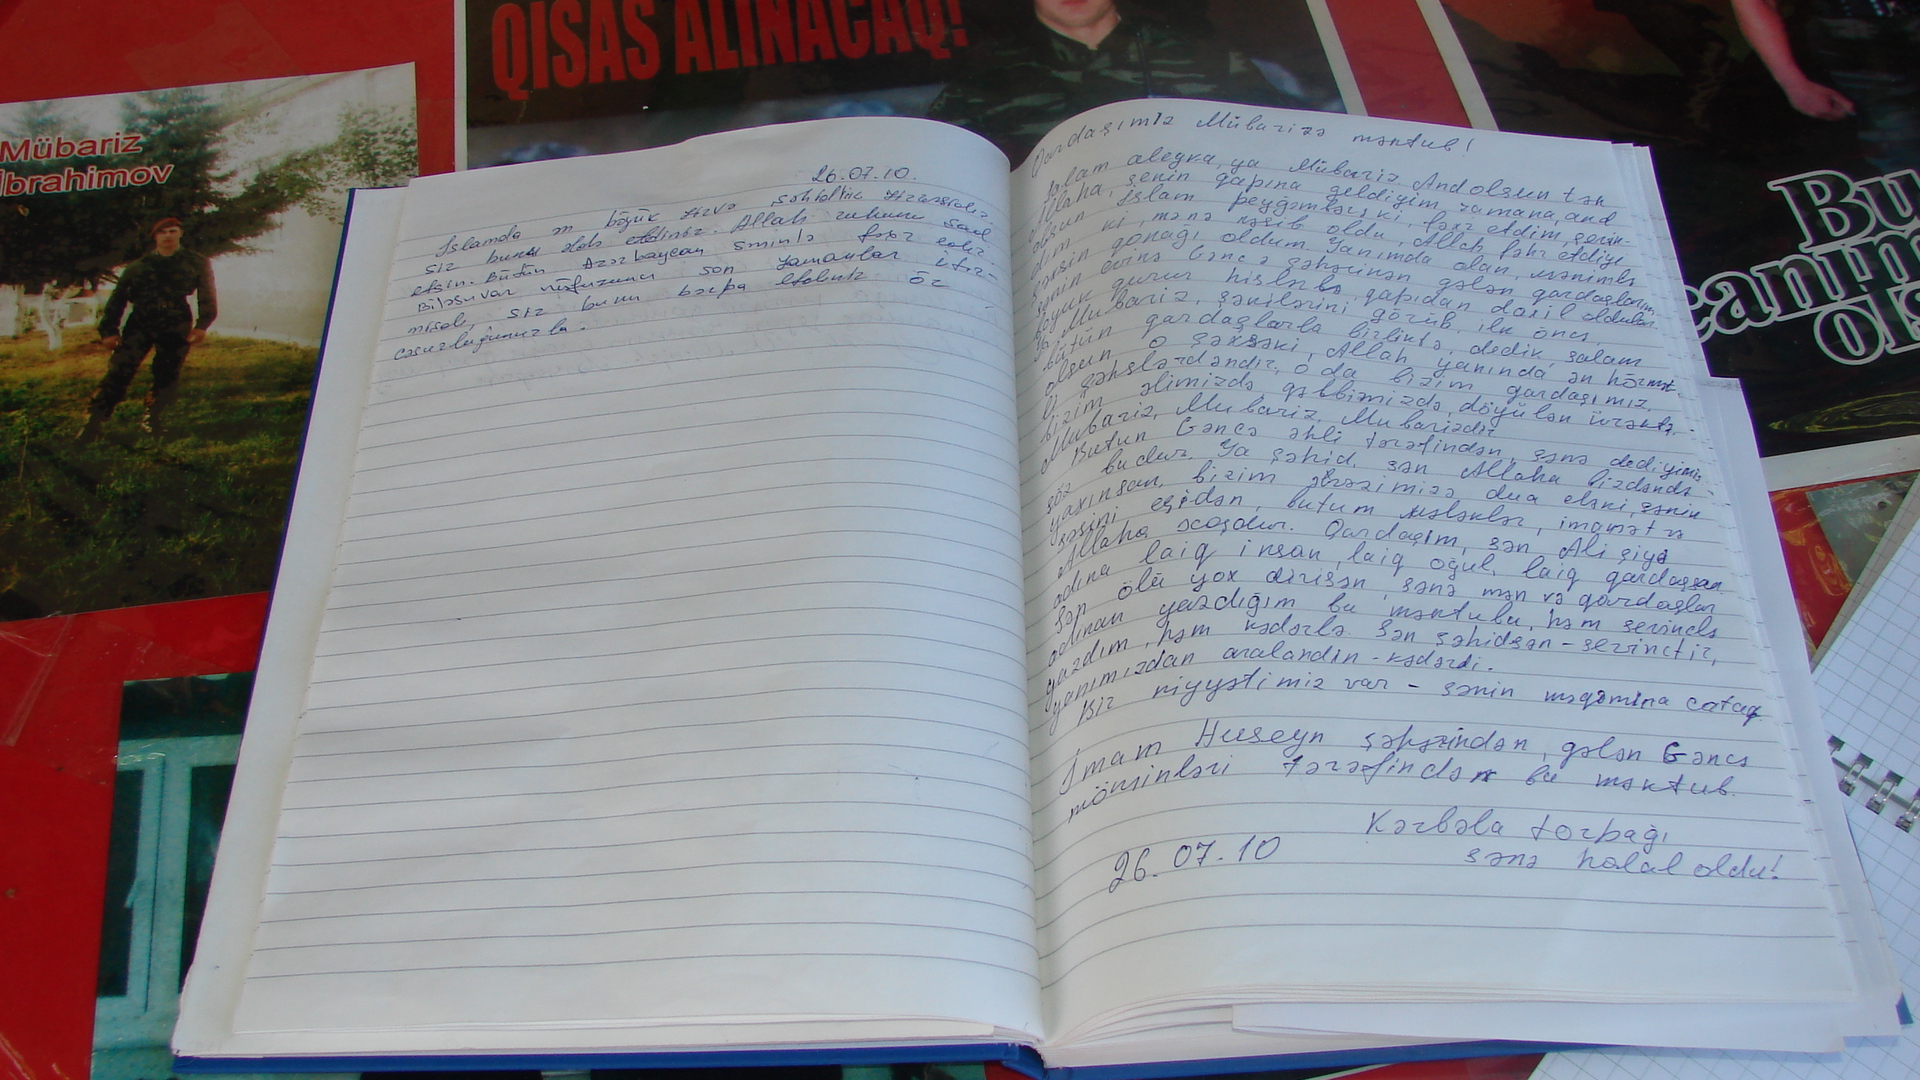 QISAS ALINACAQ!
Mübariz
İbrahimov
26.07.10.
İslamda ən böyük zirvə şəhidlik zirvəsidir.
siz bunu əldə etdiniz. Allah ruhunu şad
etsin. Bütün Azərbaycan sminlə fəxr edir
Biləsuvar nüfuzunu son zamanlar itir-
mişdi, siz bunu bərpa etdiniz öz
cəsurluğunuzla.
Qardaşımız Mübarizə məktub!
Salam aleyka, ya Mübariz And olsun tək
Allaha, sənin qapına gəldiyim zamana, and
olsun İslam peyğəmbərinə ki, fəxr etdim, sevin-
dim ki, mənə nəsib oldu, Allah fəhr etdiyi
şəxsin qonağı oldum. Yanımda olan, mənimlə
sənin evinə Gəncə şəhərinən gələn qardaşların
böyük qurur hislərlə qapıdan daxil oldular.
Ya Mübariz, şəkilərini görüb, ilk öncə,
bütün qardaşlarla birliktə, dedik, salam
olsun o şəxsəki, Allah yanında ən hörmət-
li şəhslərdəndir, o da bizim qardaşımız,
bizim əlimizdə, qəlbimizdə, döyülən ürəktə-
Mubariz, Mubariz, Mubarizdir
Butun Gəncə əhli tərəfindən, sənə dediyimiz
söz budur. Ya şəhid, sən Allaha bizdəndə
yaxınsan, bizim əvəzimizə dua eləki, sənin
səsini eşidən, butum mələklər, imamət və
Allaha xoşdur. Qardaşım, sən Ali şiyə
adına laiq insan, laiq oğul, laiq qardaşsan.
Sən ölü yox dirisən, sənə mən və qardaşlar
adınan yazdığım bu məktubu, həm sevinclə
yazdım, həm kədərlə. Sən şəhidsən - sevinctir,
yanımızdan aralandın - kədərdi.
Bir niyyətimiz var - sənin məqamına cataq
İmam Huseyn şəhərindən, gələn Gəncə
möminləri tərəfindən bu məktub.
Kərbəla torpağı
sənə halal oldu!
26.07.10